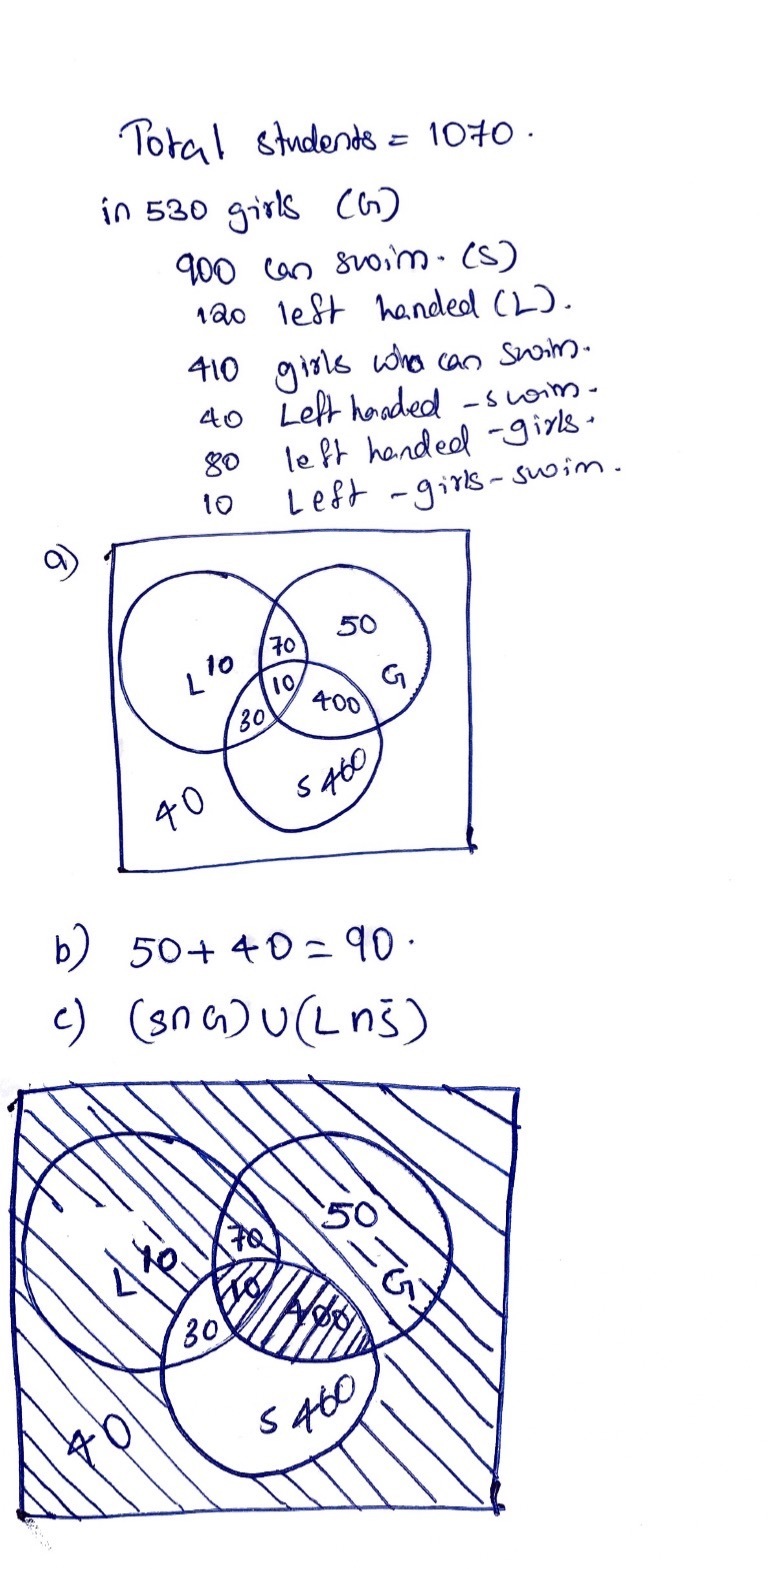 Total students = 1070.
in 530 girls (G)
900 can swim. (S)
120 left handed (L).
410 girls who can swim.
40 Left handed - swim.
80 left handed - girls.
10 Left - girls - swim.
a)
50
70
L 10
G
10
400
30
S 460
40
b) 50 + 40 = 90.
c) (S∩G) ∪ (L ∩ S̄)
50
70
L 10
G
10
400
30
S 460
40